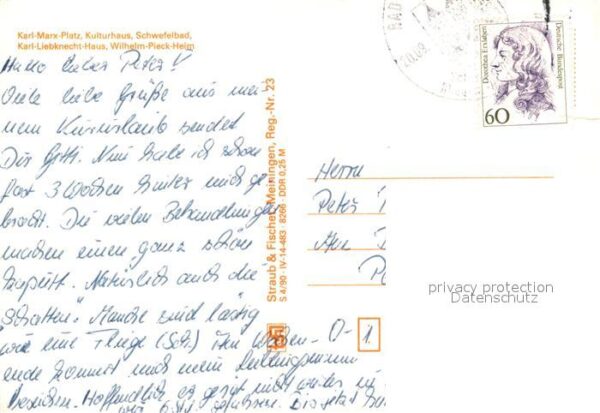 Karl-Marx-Platz, Kulturhaus, Schwefelbad,
Karl-Liebknecht-Haus, Wilhelm-Pieck-Heim
Hallo lieber Peter!
Viele liebe Grüße aus mei-
nem Kururlaub sendet
Dir Nun habe ich schon
fast 3 Wochen hinter mich ge-
bracht. Die vielen Behandlungen
machen einen ganz schön
kaputt. Natürlich auch die
"Schatten". Manche sind lästig
wie eine Fliege (Sch.)
ende kommt und mein Lieblingsmann
Hoffentlich es nicht wieder
gefahren. Bis jetzt
Straub & Fischer, Meiningen, Reg.-Nr. 23
S 4/90 · IV-14-483 · 8266 · DDR 0,25 M
BAD
Dorothea Erxleben
Deutsche Bundespost
60
Herrn
Peter
O-1
privacy protection
Datenschutz